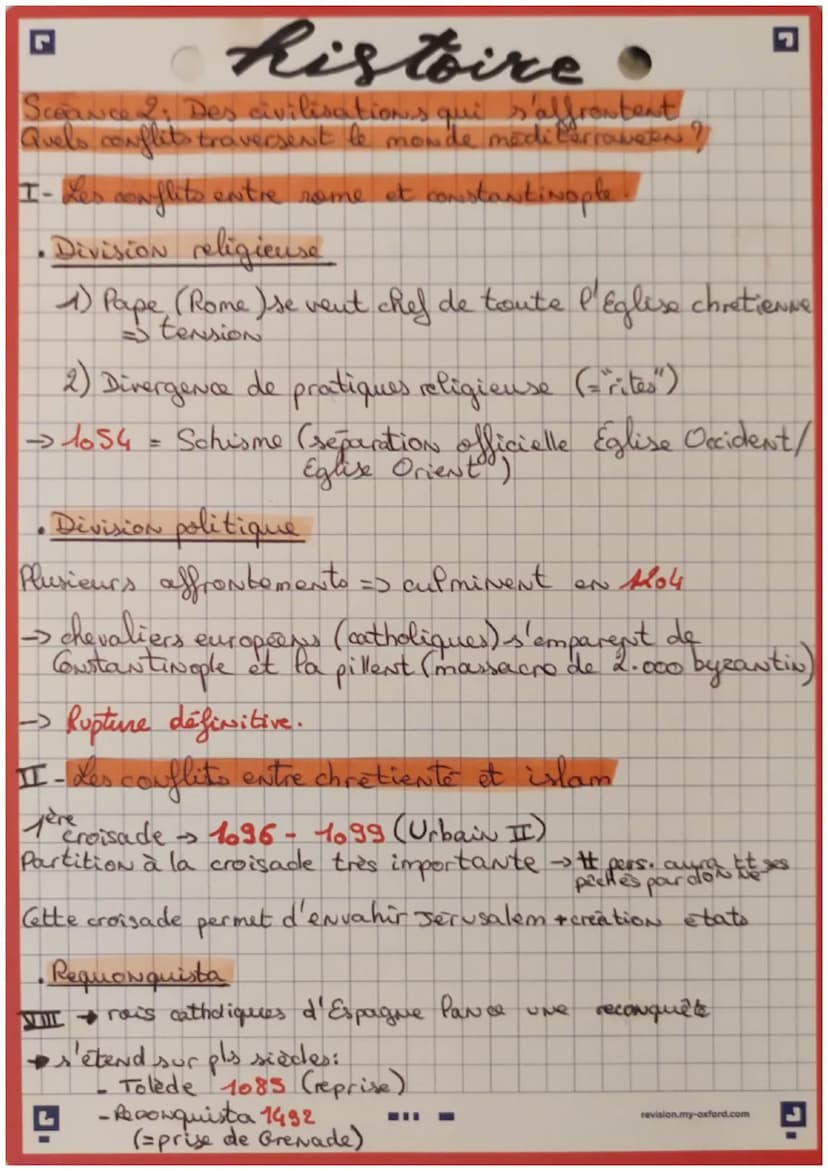 histoire
Scéance 2: Des civilisations qui s'affrontent
Quels conflits traversent le monde méditerranéen ?
I- Les conflits entre rome et constantinople.
. Division religieuse
1) Pape (Rome) se veut chef de toute l'Église chrétienne
=> tension
2) Divergence de pratiques religieuse (="rites")
-> 1054 = Schisme (séparation officielle Église Occident/
Église Orient")
. Division politique
Plusieurs affrontements => culminent en 1204
-> chevaliers européens (catholiques) s'emparent de
Constantinople et la pillent (massacre de 2.000 byzantin)
-> Rupture définitive.
II - Les conflits entre chrétienté et islam
1ère croisade -> 1096 - 1099 (Urbain II)
Partition à la croisade très importante -> tt pers. aura tt ses
péchés pardonné
Cette croisade permet d'envahir Jérusalem + création états
. Requonquista
VIII -> rois catholiques d'Espagne lance une reconquête
-> s'étend sur pls siècles:
- Tolède 1085 (reprise)
- Reconquista 1492
(=prise de Grenade)
revision.my-oxford.com